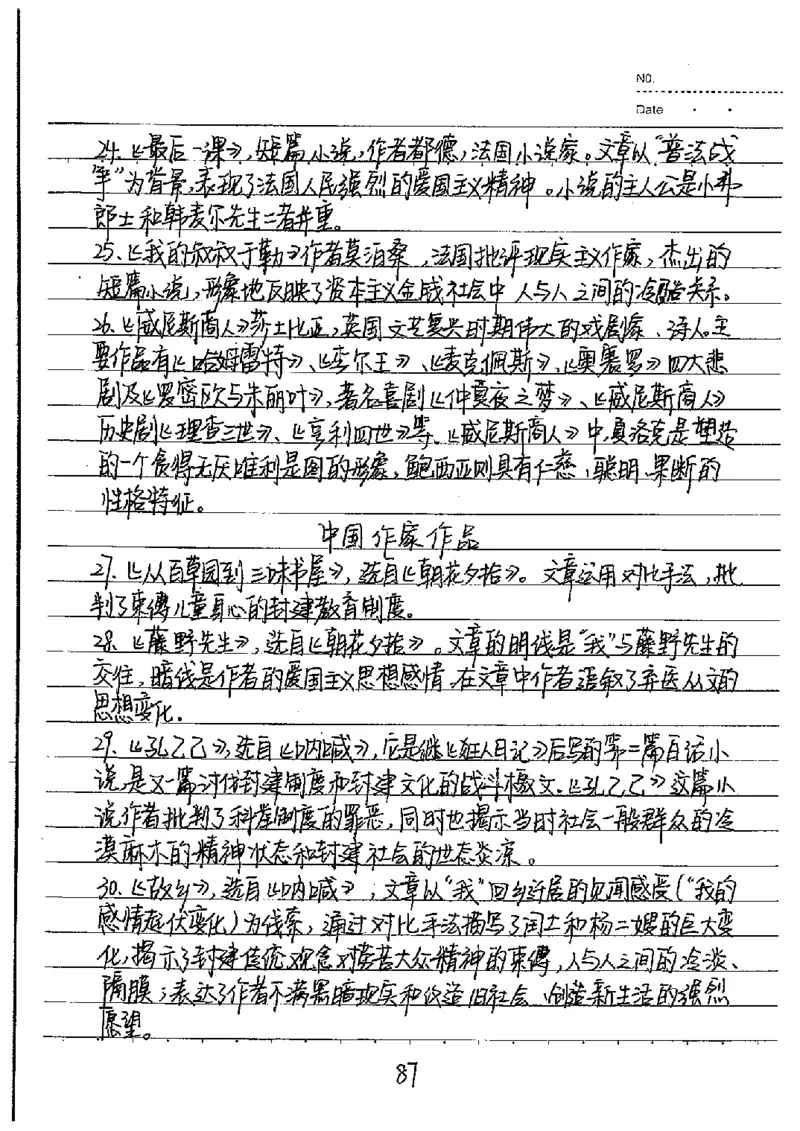 NO.
Date
24.《最后一课》,短篇小说,作者都德,法国小说家。文章以"普法战
争"为背景,表现了法国人民强烈的爱国主义精神。小说的主人公是小弗
郎士和韩麦尔先生二者并重。
25.《我的叔叔于勒》作者莫泊桑,法国批评现实主义作家,杰出的
短篇小说,形象地反映了资本主义金钱社会中人与人之间的冷酷关系。
26.《威尼斯商人》莎士比亚,英国文艺复兴时期伟大的戏剧家、诗人。主
要作品有《哈姆雷特》、《李尔王》、《麦克佩斯》、《奥赛罗》四大悲
剧及《罗密欧与朱丽叶》,著名喜剧《仲夏夜之梦》、《威尼斯商人》
历史剧《理查三世》、《亨利四世》等。《威尼斯商人》中,夏洛克是塑造
的一个贪得无厌唯利是图的形象,鲍西亚则具有仁慈、聪明、果断的
性格特征。
中国作家作品
27.《从百草园到三味书屋》,选自《朝花夕拾》。文章运用对比手法,批
判了束缚儿童身心的封建教育制度。
28.《藤野先生》,选自《朝花夕拾》。文章的明线是"我"与藤野先生的
交往,暗线是作者的爱国主义思想感情。在文章中作者追叙了弃医从文的
思想变化。
29.《孔乙己》,选自《呐喊》,它是继《狂人日记》后写的第二篇白话小
说,是又一篇讨伐封建制度和封建文化的战斗檄文。《孔乙己》这篇小
说作者批判了科举制度的罪恶,同时也揭示当时社会一般群众的冷
漠麻木的精神状态和封建社会的世态炎凉。
30.《故乡》,选自《呐喊》;文章以"我"回乡迁居的见闻感受("我的
感情起伏变化)为线索,通过对比手法描写了闰土和杨二嫂的巨大变
化,揭示了封建传统观念对劳苦大众精神的束缚,人与人之间的冷淡、
隔膜;表达了作者不满黑暗现实和改造旧社会、创造新生活的强烈
愿望。
87